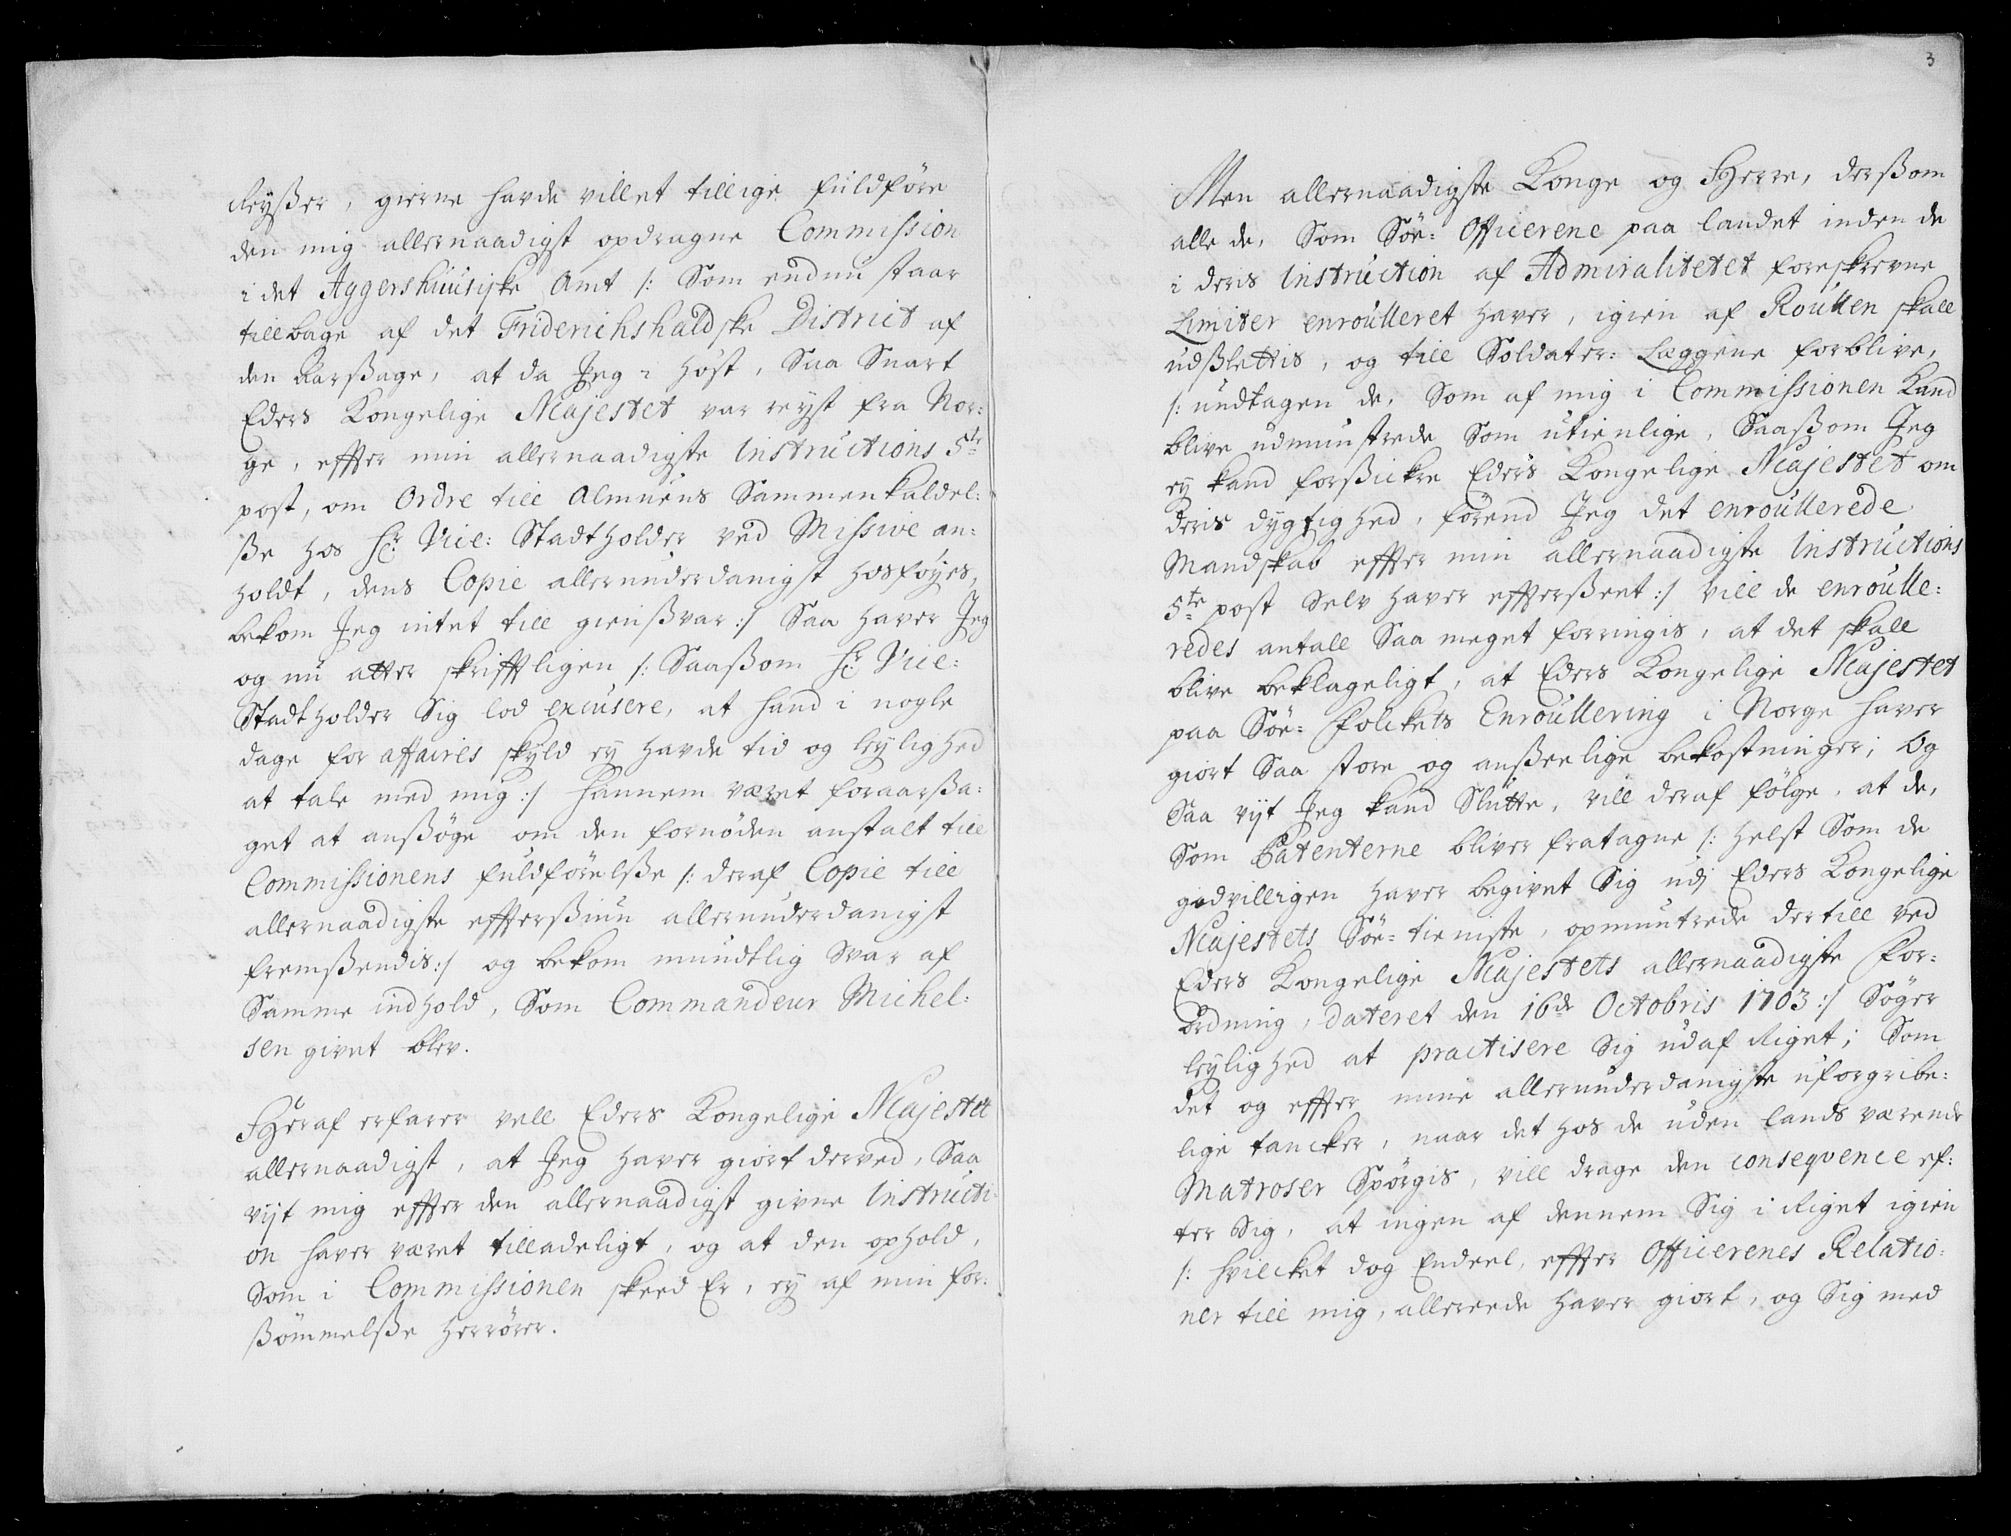 Reysßer, gierne hafde villet tillige fuldföre
den mig allernaadigst opdragne Commission
i det Aggershuusiske Amt /: Som endnu staar
tillbage af det Friderichshaldske District af
den Aarsßage, at da Jeg i höst, Saa Snart
Eders Kongelige Majestet var reyst fra Nor:
ge, effter min allernaadigste Instructions 5te
post, om Ordre till Almuens Sammenkaldel:
ße hos Hr. Vice: Stadtholder ved Missive an:
holdt, dens Copie allerunderdanigst hosföyes,
bekom Jeg intet till giensßvar :/ Saa haver Jeg
og nu atter skrifftligen /: Saasßom Hr. Vice:
Stadtholder Sig lod excusere, at hand i nogle
dage for affaires skyld ey havde tid og leylighed
at tale med mig :/ hannem været foraarsßa:
get at ansßöge om den fornöden anstalt till
Commissionens fuldförelsße /: deraf Copie till
allernaadigste efftersßiun allerunderdanigst
fremsßendis :/ og bekom mundtlig Svar af
Samme indhold, Som Commandeur Michel:
sen givet blev.
Heraf erfarer vell Eders Kongelige Majestet
allernaadigst, at Jeg haver giort derved, Saa
vijt mig effter den allernaadigst givne Instructi:
on haver været tilladeligt, og at den ophold,
Som i Commissionen skeed Er, ey af min for:
ßömmelsße herrörer.
3
Men allernaadigste Konge og Herre, dersßom
alle de, Som Söe: Officerene paa landet inden de
i deris Instruction af Admiralitetet foreskrevne
Limiter enroulleret haver, igien af Roullen skall
udsßlettis, og till Soldater: Læggene forblive,
/: undtagen de, Som af mig i Commissionen Kand
blive udmunstrede Som utienlige, Saasßom Jeg
ey kand forsßickre Eders Kongelige Majestet om
deris dygtighed, förend Jeg det enroullerede
Mandskab effter min allernaadigste Instructions
5te post Selv haver efftersßeet :/ vill de enroulle:
redes antall Saa meget forringis, at det skall
blive beklageligt, at Eders Kongelige Majestet
paa Söe: Folckets Enroullering i Norge haver
giort Saa store og ansßeelige bekostninger; Og
Saa vijt Jeg kand Slutte, vill deraf fölge, at de,
Som Patenterne bliver fratagne /: helst Som de
godvilligen haver begivet Sig udj Eders Kongelige
Majestets Söe=tienniste, opmuntrede dertill ved
Eders Kongelige Majestets allernaadigste For:
ordning, dateret den 16de Octobris 1703 :/ Söger
leylighed at practisere Sig udaf Riget; Som
det og effter mine allerunderdanigste uforgribe:
lige tancker, naar det hos de uden lands værende
Matroser Spörgis, vill drage den conseqvence ef:
ter Sig, at ingen af dennem Sig i Riget igien
/: hvilcket dog Endeel, effter Officerenes Relatio:
ner till mig, allereede haver giort, og Sig med